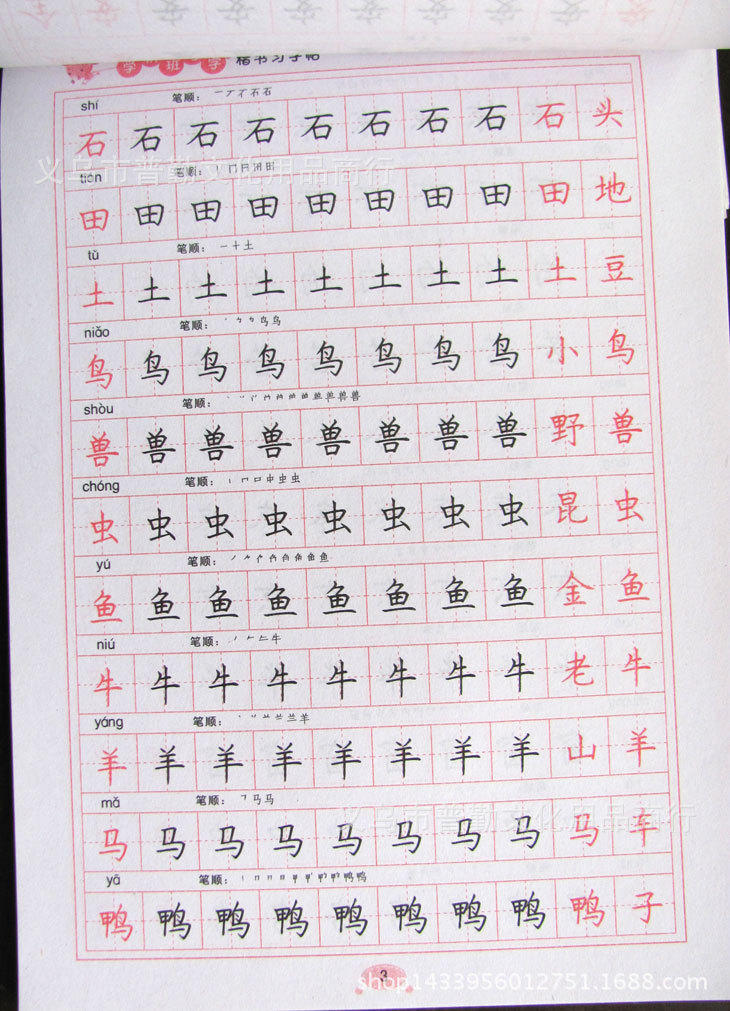 学 班 学 楷书习字帖
shí 笔顺：
石 石 石 石 石 石 石 石 石 头
tián 笔顺：
田 田 田 田 田 田 田 田 田 地
tǔ 笔顺： 一十土
土 土 土 土 土 土 土 土 土 豆
niǎo 笔顺：
鸟 鸟 鸟 鸟 鸟 鸟 鸟 鸟 小 鸟
shòu 笔顺：
兽 兽 兽 兽 兽 兽 兽 兽 野 兽
chóng 笔顺：
虫 虫 虫 虫 虫 虫 虫 虫 昆 虫
yú 笔顺：
鱼 鱼 鱼 鱼 鱼 鱼 鱼 鱼 金 鱼
niú 笔顺：
牛 牛 牛 牛 牛 牛 牛 牛 老 牛
yáng 笔顺：
羊 羊 羊 羊 羊 羊 羊 羊 山 羊
mǎ 笔顺：
马 马 马 马 马 马 马 马 马 车
yā 笔顺：
鸭 鸭 鸭 鸭 鸭 鸭 鸭 鸭 鸭 子
3
义乌市普勤文化用品商行
义乌市普勤文化用品商行
shop1433956012751.1688.com